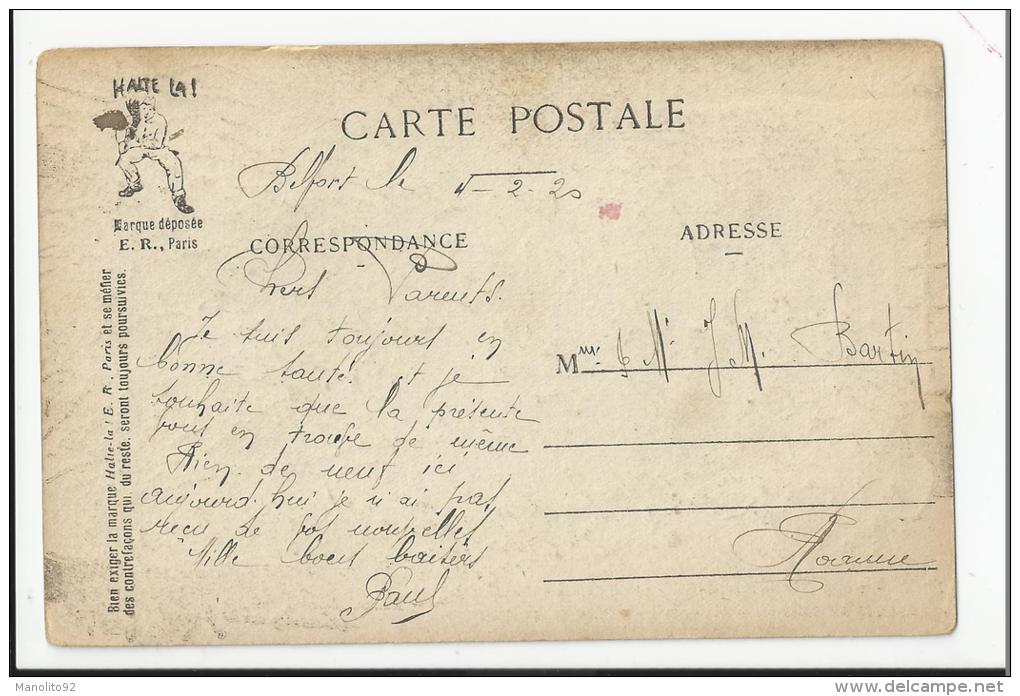 HALTE LA!
Marque déposée
E. R., Paris
Bien exiger la marque Halte-la! E. R. Paris et se méfier
des contrefaçons qui, du reste, seront toujours poursuivies.
CARTE POSTALE
Belfort le 5-2-20
CORRESPONDANCE
Chers Parents.
Je suis toujours en
bonne santé. et je
souhaite que la présente
vous en trouve de même
Rien de neuf ici
aujourd'hui je n'ai pas
reçu de vos nouvelles
Mille bons baisers
Paul
ADRESSE
Mme & Mr J M. Bartin
Roanne
Manolito92
www.delcampe.net